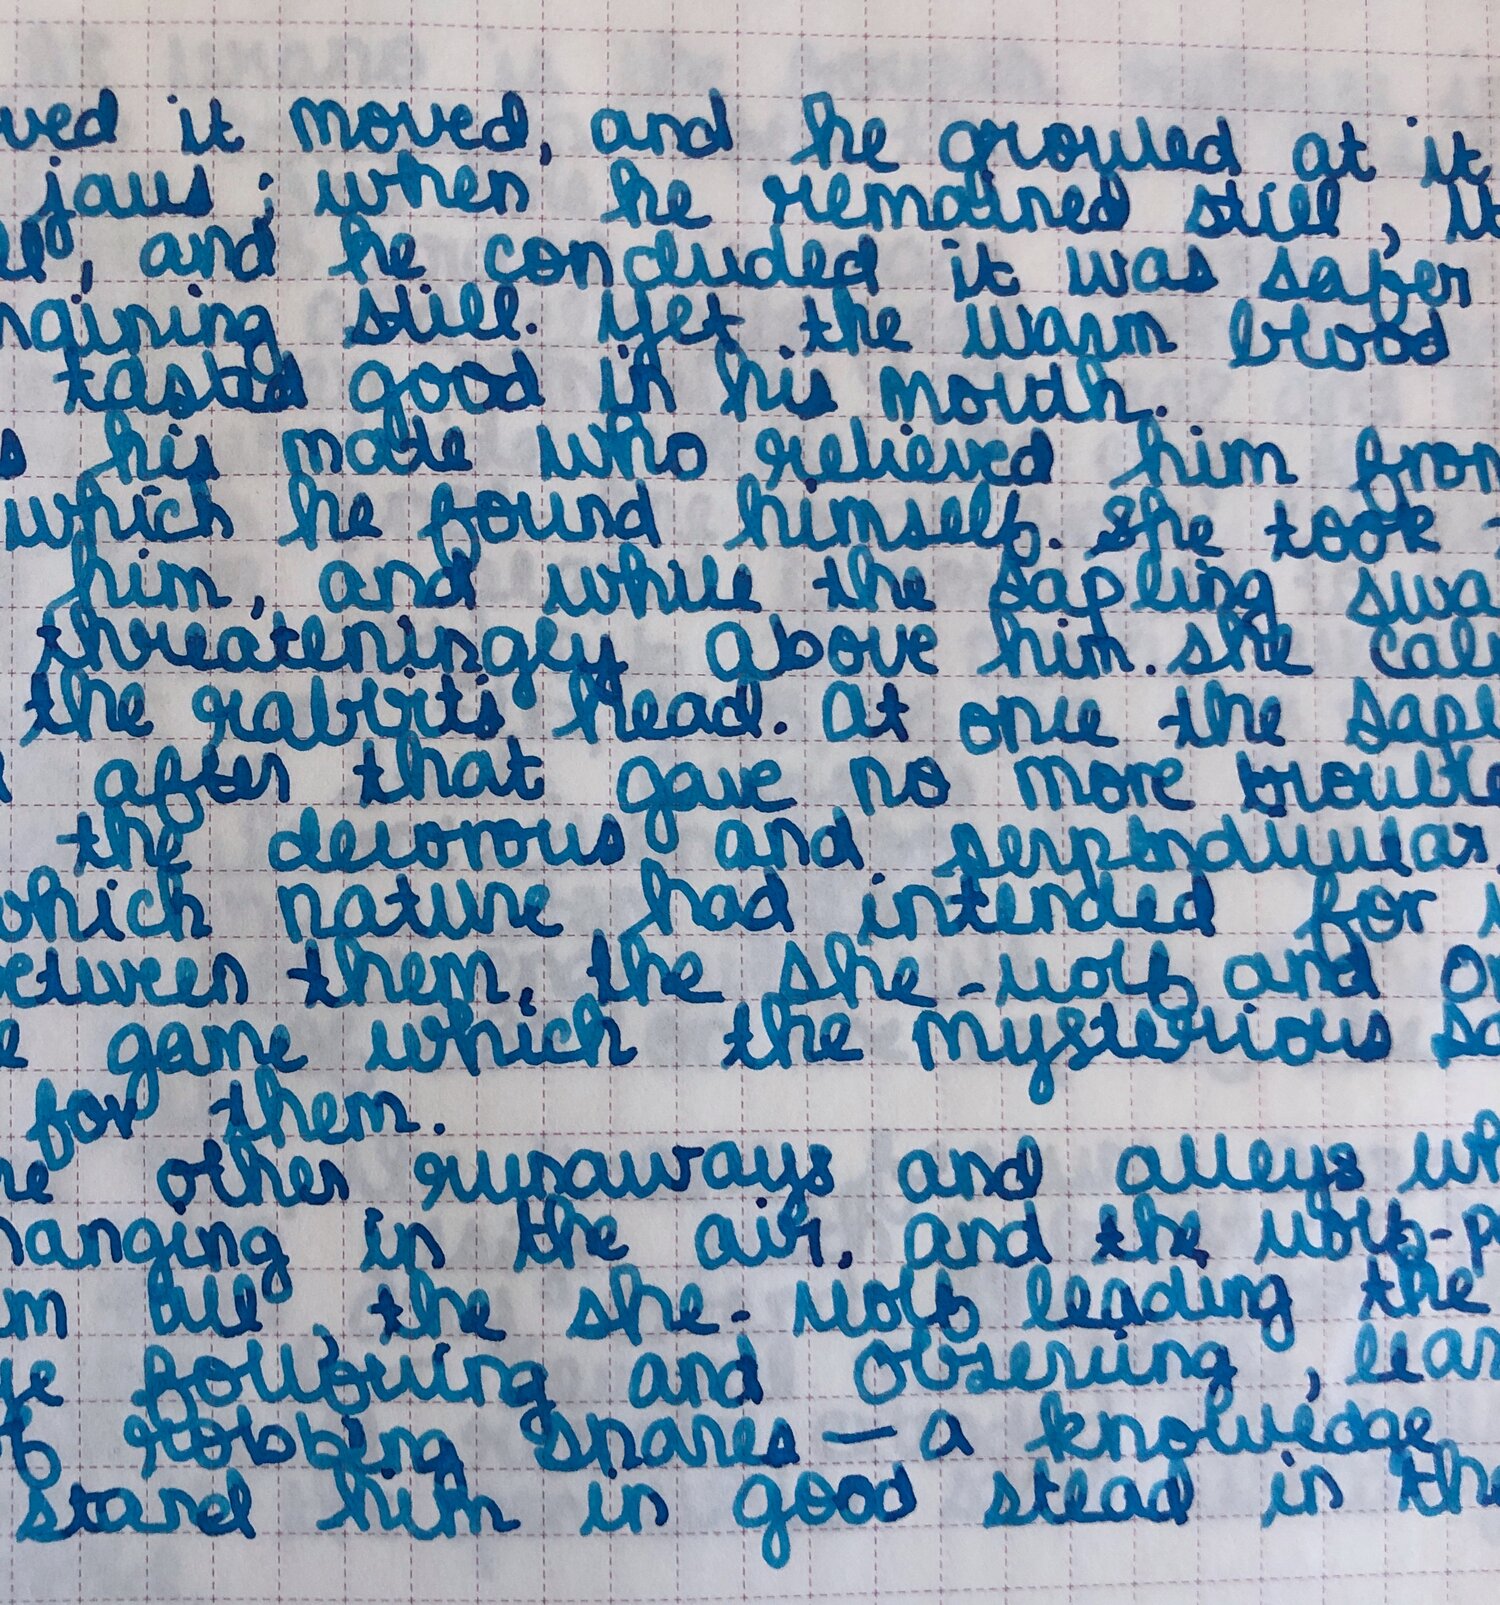 ved it moved, and he growled at it
jaws; when he remained still, it
, and he concluded it was safer
maining still. Yet the warm blood
tasted good in his mouth.
s his mate who relieved him from
which he found himself. she took
him, and while the sapling swa
threateningly above him. she cal
the rabbit's head. At once the sapl
after that gave no more trouble
the decorous and perpendicular
which nature had intended for
between them, the she-wolf and On
e game which the mysterious sa
for them.
re other runaways and alleys wh
hanging in the air, and the wolf-p
m all, the she-wolf leading the
ye following and observing, lear
of robbing snares — a knowledge
stand him in good stead in the